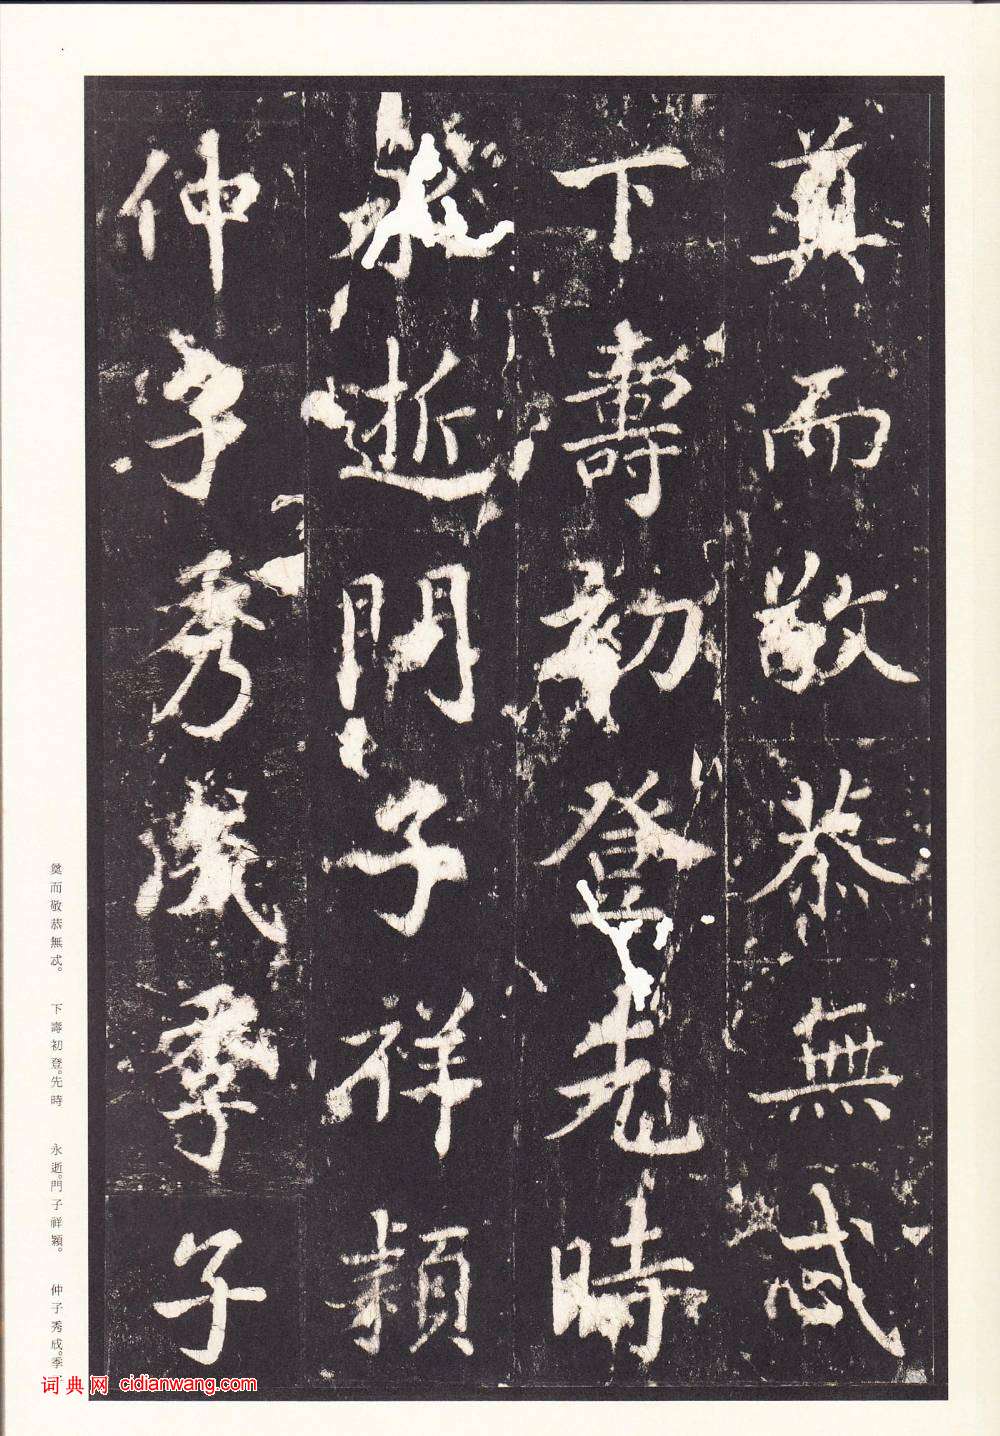 奠而敬恭無忒
下壽初登先時
永逝門子祥穎
仲子秀成季子
奠而敬恭無忒。 下壽初登。先時 永逝。門子祥穎。 仲子秀成。季子
词典网 cidianwang.com